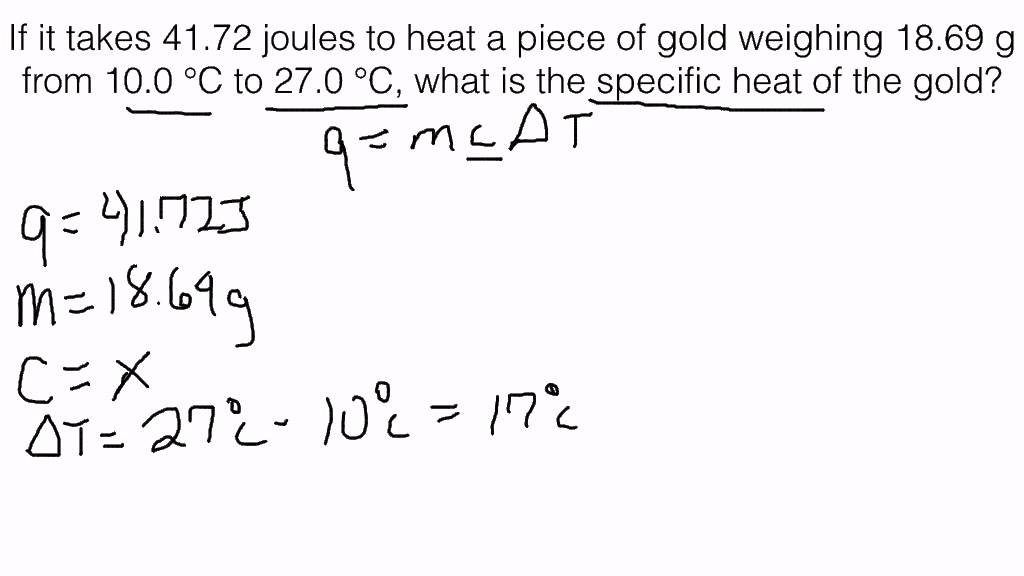 If it takes 41.72 joules to heat a piece of gold weighing 18.69 g
from 10.0 °C to 27.0 °C, what is the specific heat of the gold?
q = mcΔT
q = 41.72J
m = 18.69g
C = x
ΔT = 27°C - 10°C = 17°C